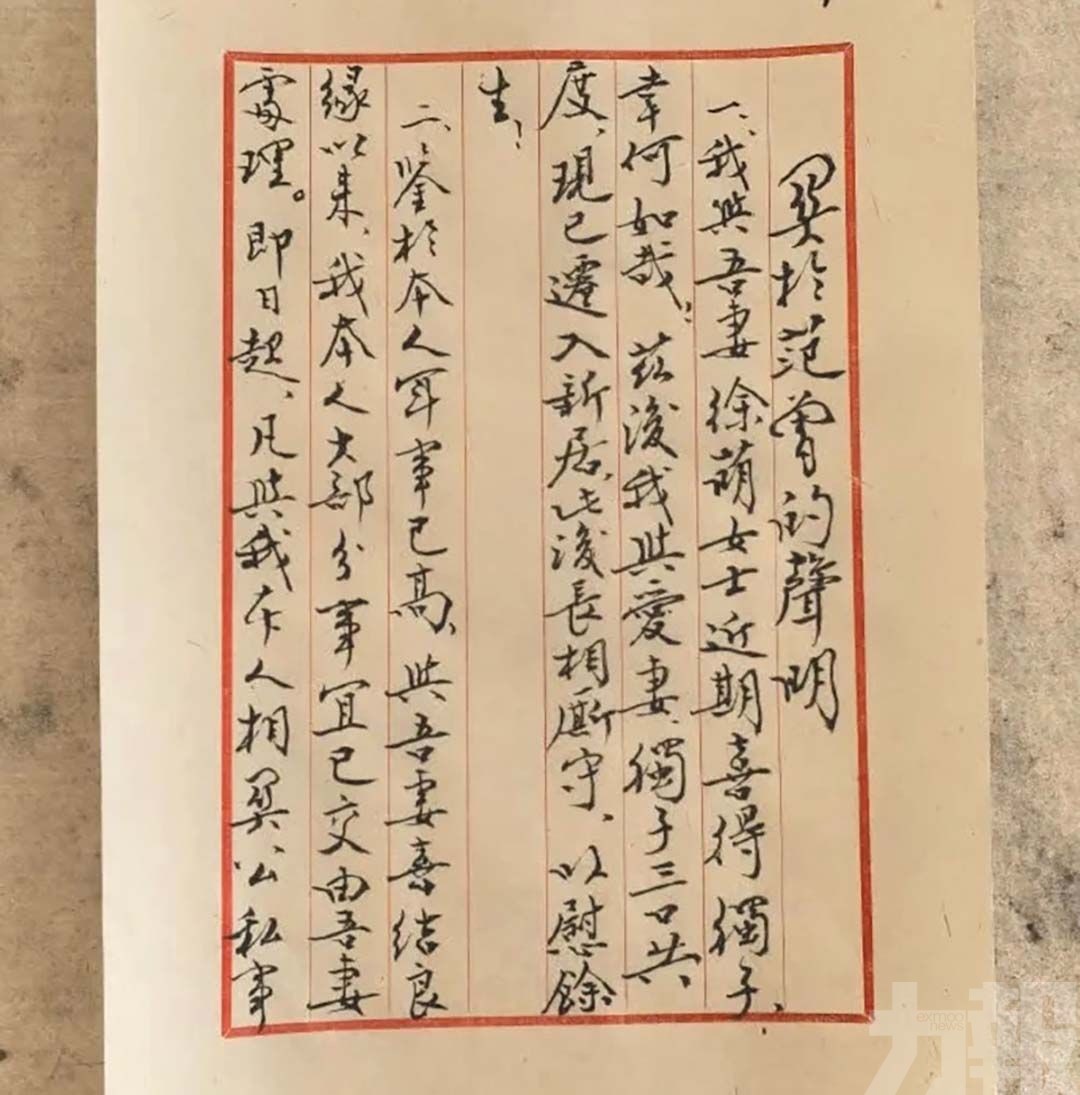 關於范曾的聲明
一、我與吾妻徐萌女士近期喜得獨子、
幸何如哉！茲後我與愛妻、獨子三口共
度、現已遷入新居、此後長相廝守、以慰餘
生！
二、鑒於本人年事已高、與吾妻喜結良
緣以來、我本人大部分事宜已交由吾妻
處理。即日起、凡與我本人相關公私事
exmoo
news
力報